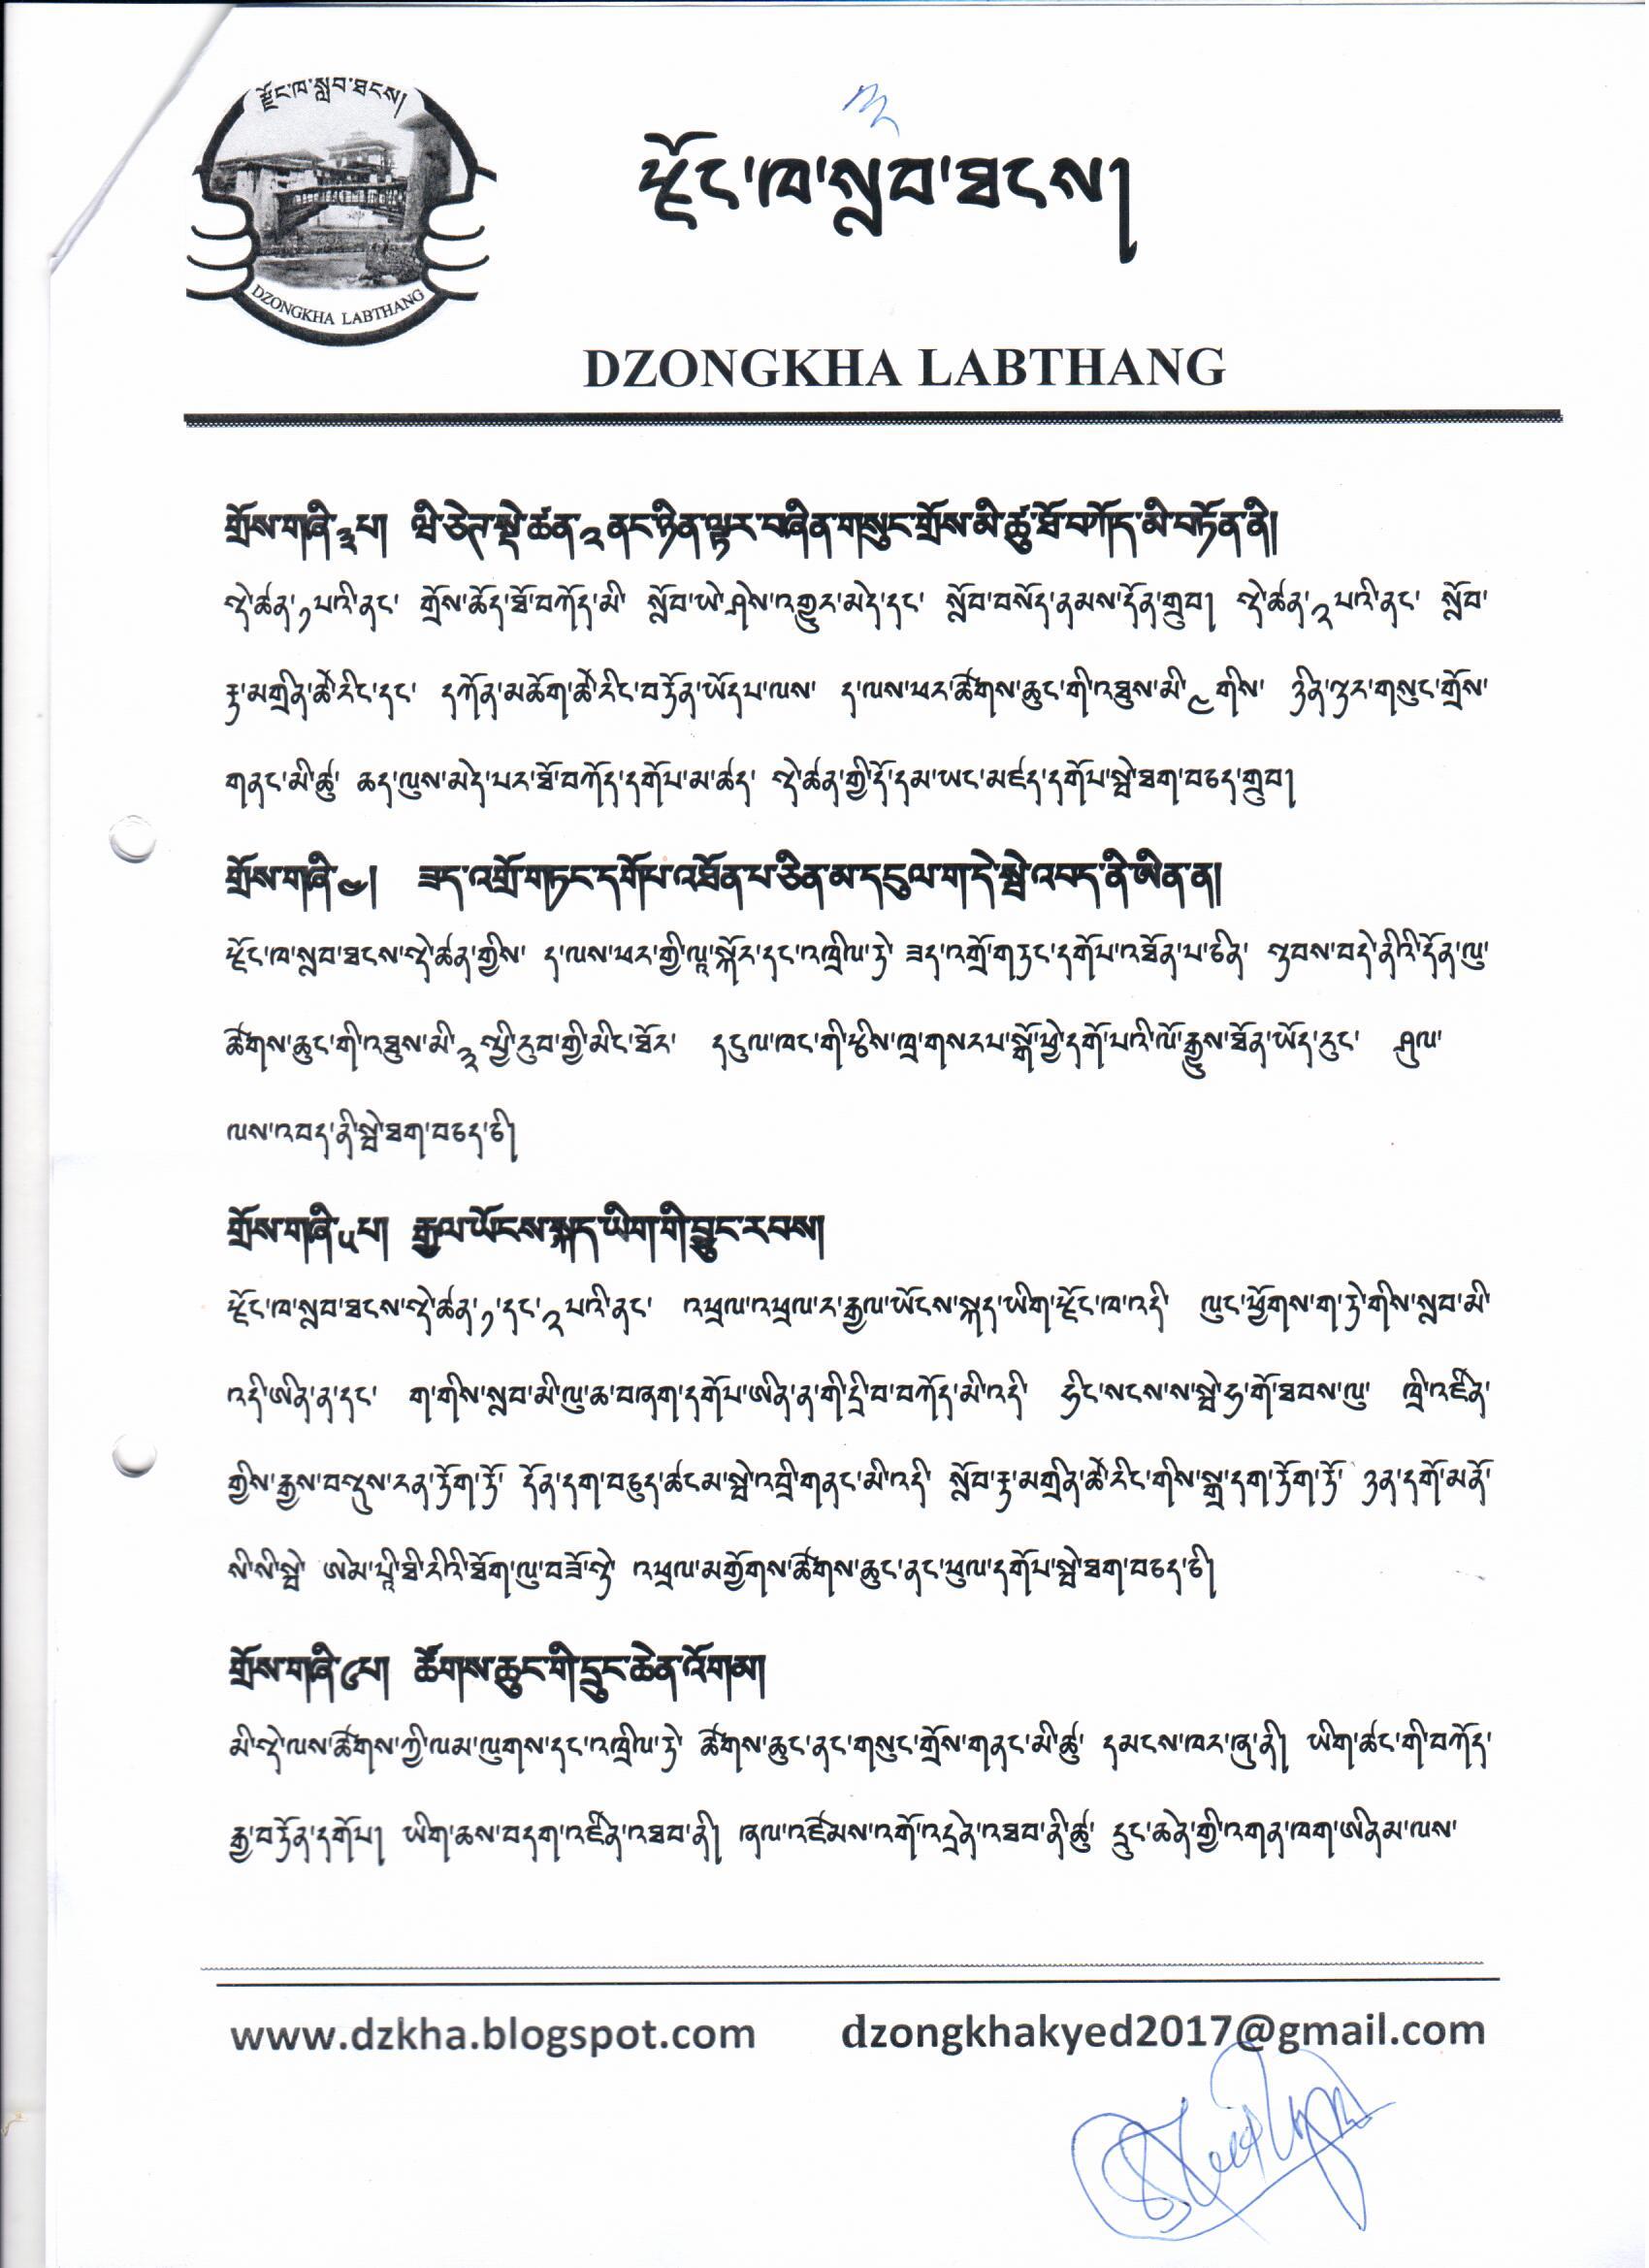 རྫོང་ཁ་སླབ་ཐངས།
DZONGKHA LABTHANG
རྫོང་ཁ་སླབ་ཐངས།
DZONGKHA LABTHANG
གྲོས་གཞི་༣པ། ཝི་ཅེཊ་སྡེ་ཚན་༢ནང་ཉིན་ལྟར་བཞིན་གསུང་གྲོས་མི་ཚུ་ཐོ་བཀོད་མི་བཏོན་ནི།
སྡེ་ཚན་༡པའི་ནང་ གྲོས་ཆོད་ཐོ་བཀོད་མི་ སློབ་ཡེ་ཤེས་འགྱུར་མེད་དང་ སློབ་བསོད་ནམས་དོན་གྲུབ། སྡེ་ཚན་༢པའི་ནང་ སློབ་
རྟ་མགྲིན་ཚེ་རིང་དང་ དཀོན་མཆོག་ཚེ་རིང་བཏོན་ཡོདཔ་ལས་ ད་ལས་ཕར་ཚོགས་ཆུང་གི་འཐུས་མི་༤གིས་ ཉིན་ལྟར་གསུང་གྲོས་
གནང་མི་ཚུ་ ཆད་ལུས་མེད་པར་ཐོ་བཀོད་དགོཔ་མ་ཚད་ སྡེ་ཚན་གྱི་དོ་དམ་ཡང་མཛད་དགོཔ་སྦེ་ཐག་བཅད་གྲུབ།
གྲོས་གཞི་༤། ཟད་འགྲོ་གཏང་དགོཔ་འཐོན་པ་ཅིན་མ་དངུལ་ག་དེ་སྦེ་འབད་ནི་ཨིན་ན།
རྫོང་ཁ་སླབ་ཐངས་སྡེ་ཚན་གྱིས་ ད་ལས་ཕར་གྱི་ལཱ་སྐོར་དང་འཁྲིལ་ཏེ་ ཟད་འགྲོ་གཏང་དགོཔ་འཐོན་པ་ཅིན་ སྟབས་བདེ་ནིའི་དོན་ལུ་
ཚོགས་ཆུང་གི་འཐུས་མི་༣སྤྱི་རུབ་གྱི་མིང་ཐོར་ དངུལ་ཁང་གི་རྩིས་ཁྲ་གསརཔ་སྒོ་ཕྱེ་དགོ་པའི་ལོ་རྒྱུས་ཐོན་ཡོད་རུང་ ཤུལ་
ལས་འབད་ནི་སྦེ་ཐག་བཅད་ཅི།
གྲོས་གཞི་༥པ། རྒྱལ་ཡོངས་སྐད་ཡིག་གི་བྱུང་རབས།
རྫོང་ཁ་སླབ་ཐངས་སྡེ་ཚན་༡་དང་༢པའི་ནང་ འཕྲལ་འཕྲལ་ར་རྒྱལ་ཡོངས་སྐད་ཡིག་རྫོང་ཁ་འདི་ ལུང་ཕྱོགས་ག་ཏེ་གིས་སླབ་མི་
འདི་ཨིན་ན་དང་ ག་གིས་སླབ་མི་ལུ་ཆ་བཞག་དགོཔ་ཨིན་ན་གི་དྲི་བ་བཀོད་མི་འདི་ ཧིང་སངས་ས་སྦེ་ཧ་གོ་ཐབས་ལུ་ ཁྲི་འཛིན་
གྱིས་རྒྱས་བསྡུས་རན་ཏོག་ཏོ་ དོན་དག་བཅུད་ཚངམ་སྦེ་འབྲི་གནང་མི་འདི་ སློབ་རྟ་མགྲིན་ཚེ་རིང་གིས་སྒྲ་དག་ཏོག་ཏོ་ ཉན་དགོ་མནོ་
སི་སི་སྦེ་ ཨེམ་པཱི་ཐི་རིའི་ཐོག་ལུ་བཟོ་སྟེ་ འཕྲལ་མགྱོགས་ཚོགས་ཆུང་ནང་ཕུལ་དགོཔ་སྦེ་ཐག་བཅད་ཅི།
གྲོས་གཞི་༦པ། ཚོགས་ཆུང་གི་དྲུང་ཆེན་འོགམ།
མི་སྡེ་ལས་ཚོགས་ཀྱི་ལམ་ལུགས་དང་འཁྲིལ་ཏེ་ ཚོགས་ཆུང་ནང་གསུང་གྲོས་གནང་མི་ཚུ་ དམངས་ཁར་ཞུ་ནི། ཡིག་ཚང་གི་བཀོད་
རྒྱ་བཏོན་དགོཔ། ཡིག་ཆས་བདག་འཛིན་འཐབ་ནི། ཞལ་འཛོམས་འགོ་འདྲེན་འཐབ་ནི་ཚུ་ དྲུང་ཆེན་གྱི་འགན་ཁག་ཨིནམ་ལས་
www.dzkha.blogspot.com dzongkhakyed2017@gmail.com